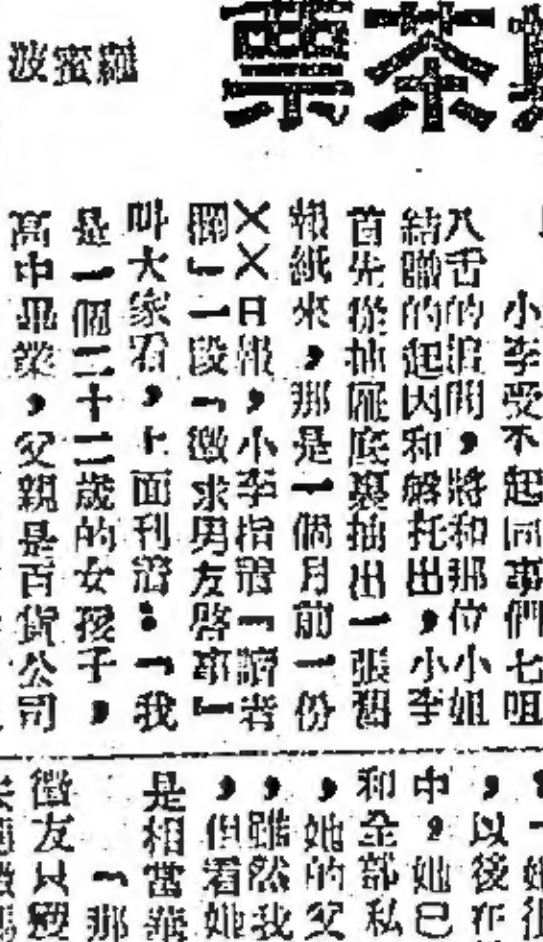 茶票
波蜜蘿
小李受不起同事們七咀
八舌的追問，將和那位小姐
結識的起因和解托出，小李
首先從抽屜底裏抽出一張舊
報紙來，那是一個月前一份
××日報，小李指着「讀者
欄」一段「徵求男友啓事」
叫大家看，上面刊着：「我
是一個二十二歲的女孩子，
高中畢業，父親是百貨公司
，以後在
中，她已
和全部私
，她的父
，雖然我
，但看她
是相當華
「那
徵友只要